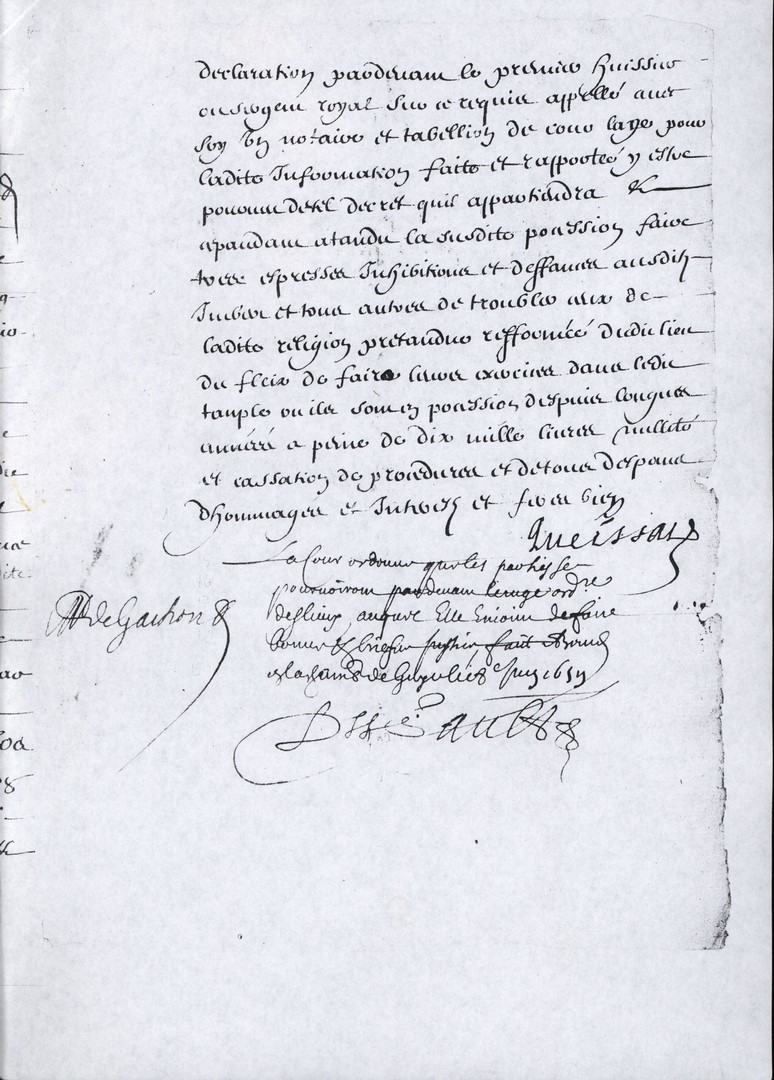 declaration pardevant le premier huissier
ou sergent royal sur ce requis appellé avec
soy un notaire et tabellion de cour laye pour
ladite Information faite et rapportée y estre
pourveu de tel decret quil appartiendra &
cependant atandu la susdite possession faire
tres expresses Inhibitions et deffances ausdits
Imbert et tous autres de troubler ceux de
ladite religion pretandue refformée dudit lieu
du fleix de faire leurs exercices dans ledit
tample ou ils sont en possession despuis longues
années a peine de dix mille livres nullité
et cassation de procedures et de tous despans
dhommages et Interests et feres bien
La Cour ordonne que les parties se
pourvoiront pardevant le juge ord.re
des lieux auquel Elle Enjoint de faire
bonne & briefve justice fait
de Gachon